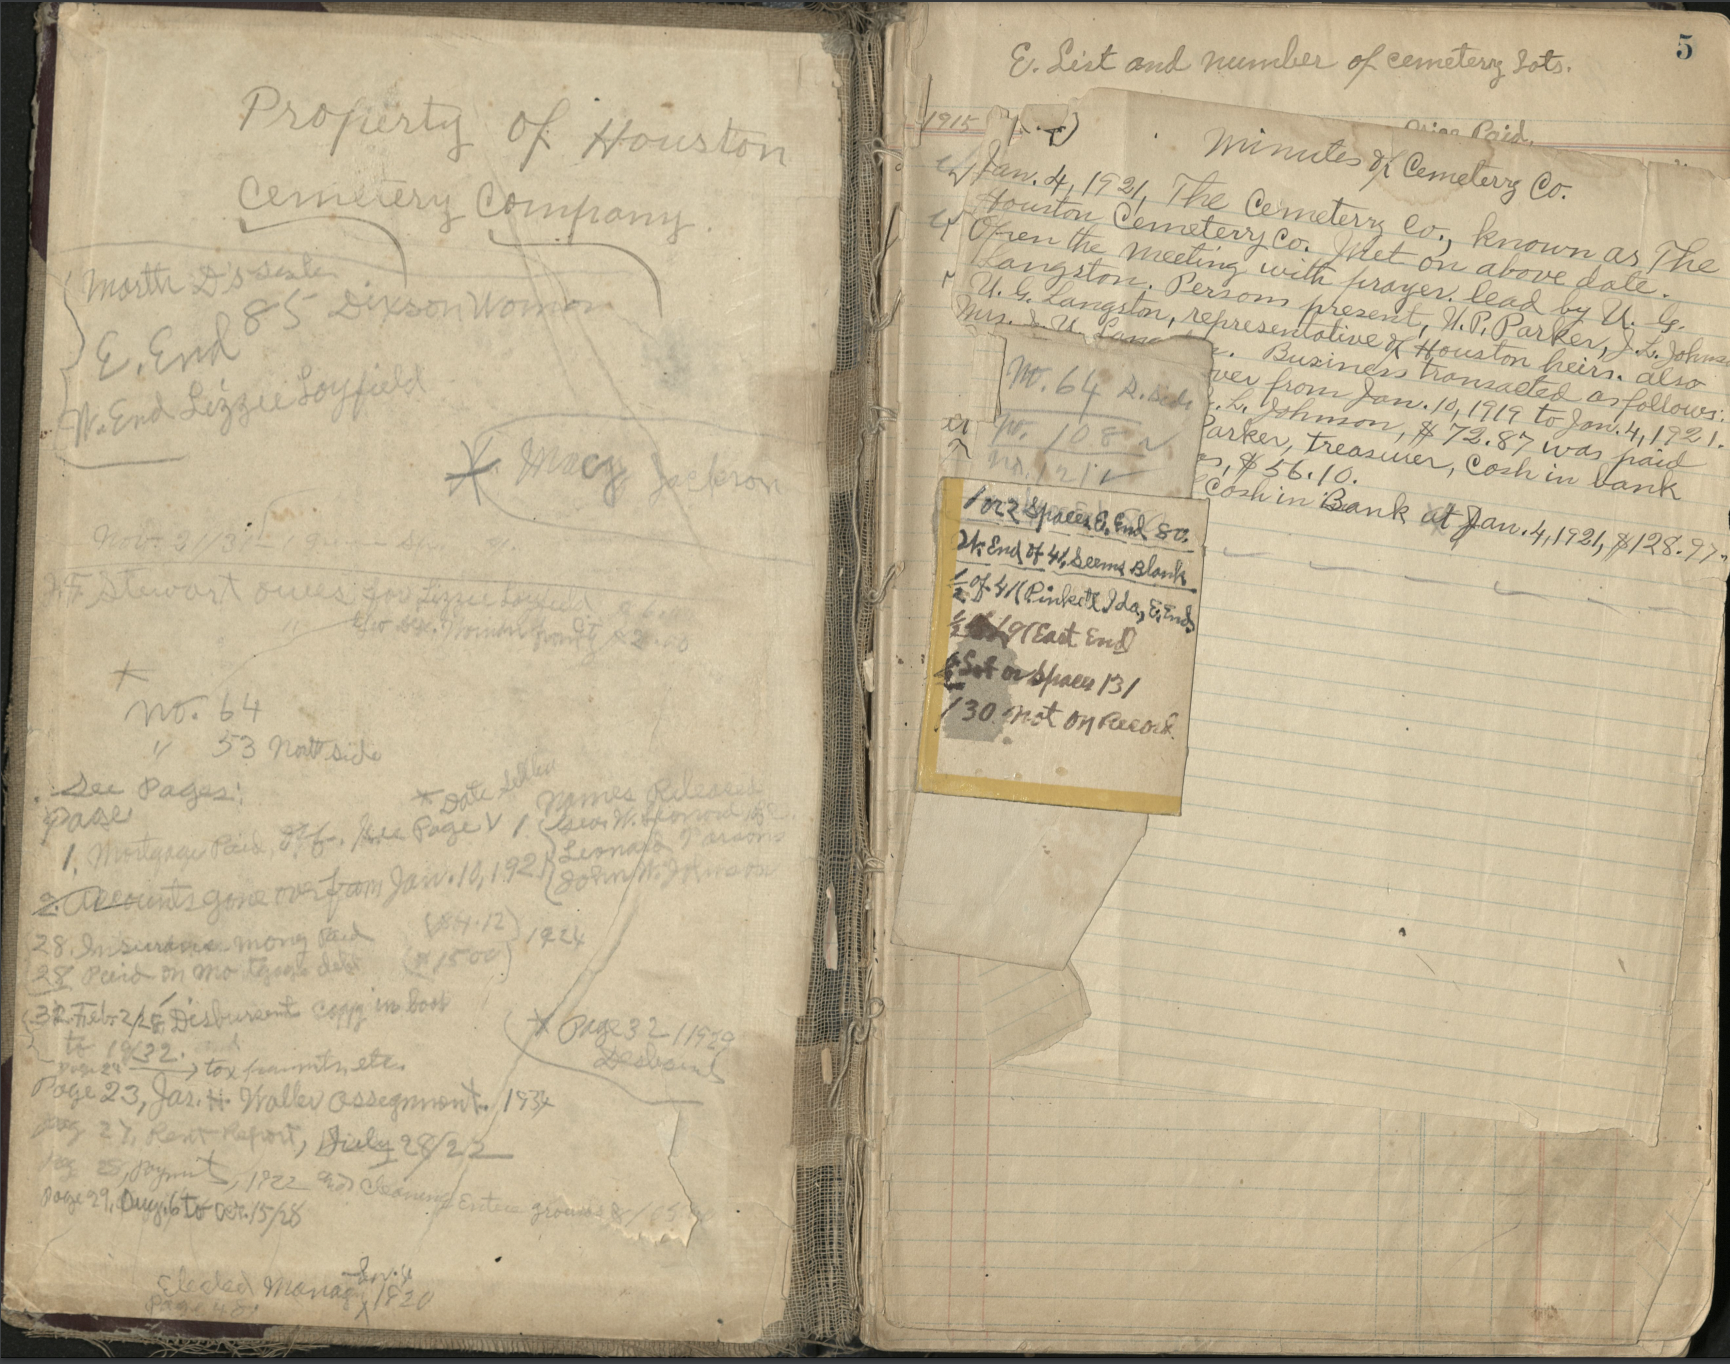 Property of Houston
Cemetery Company.
North D's side
E. End 85 Dixson Woman
W. End Lizzie Loyfield
Macy Jackson
Stewart owes for Lizzie Loyfield
No. 64
" 53 North side
See Pages:
Page
* Date
Names Released
1. Mortgage Paid off. See Page V 1.
Geo. W.
Leonard Parsons
John W. Johnson
2. Accounts gone over from Jan. 10, 192
28. Insurance mony Paid ($84.12) 1924
28 Paid on Mortgage debt ($1500)
32. Feb. 2/28, Disbursent copy in book
to 1932.
Page 28 → tax paymnts, etc.
* Page 32 1929
Page 23, Jas. H. Waller assegnment. 1934
Pag 27, Rent Report, July 28/22
Pag 28, Paymnt, 1922 and Cleaning Entire grounds
Page 29, Aug. 6 to Oct. 15/28
Elected Manag Jan. 4 1920
5
E. List and number of cemetery Lots.
1915
Price Paid.
Minutes of Cemeterry Co.
Jan. 4, 1921, The Cemeterry Co., known as The
Houston Cemeterry Co. Met on above date.
Open the meeting with prayer. lead by U. G.
Langston. Persons present, W. P. Parker, J. L. Johns
U. G. Langston, representative of Houston heirs. also
Mrs. J. U. Lang Business transacted as follows:
ver from Jan. 10, 1919 to Jan. 4, 1921.
L. Johnson, $72.87 was paid
Parker, treasurer, cash in bank
es, $56.10.
Cash in Bank at Jan. 4, 1921, $128.97.
No. 64 S. side
No. 108
No. 121
1 or 2 Spaces E. End 80.
W. End of 41, Seems Blank
1/2 of 41 (Pinkett Ida, E. End)
1/2 19 (East End)
1/2 Lot or Spaces 131
130 Not on Record.